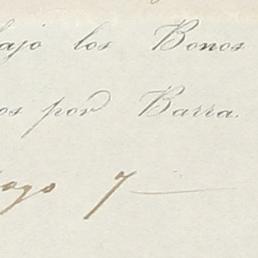 bajo los Bonos
os por Barra.
ago 7